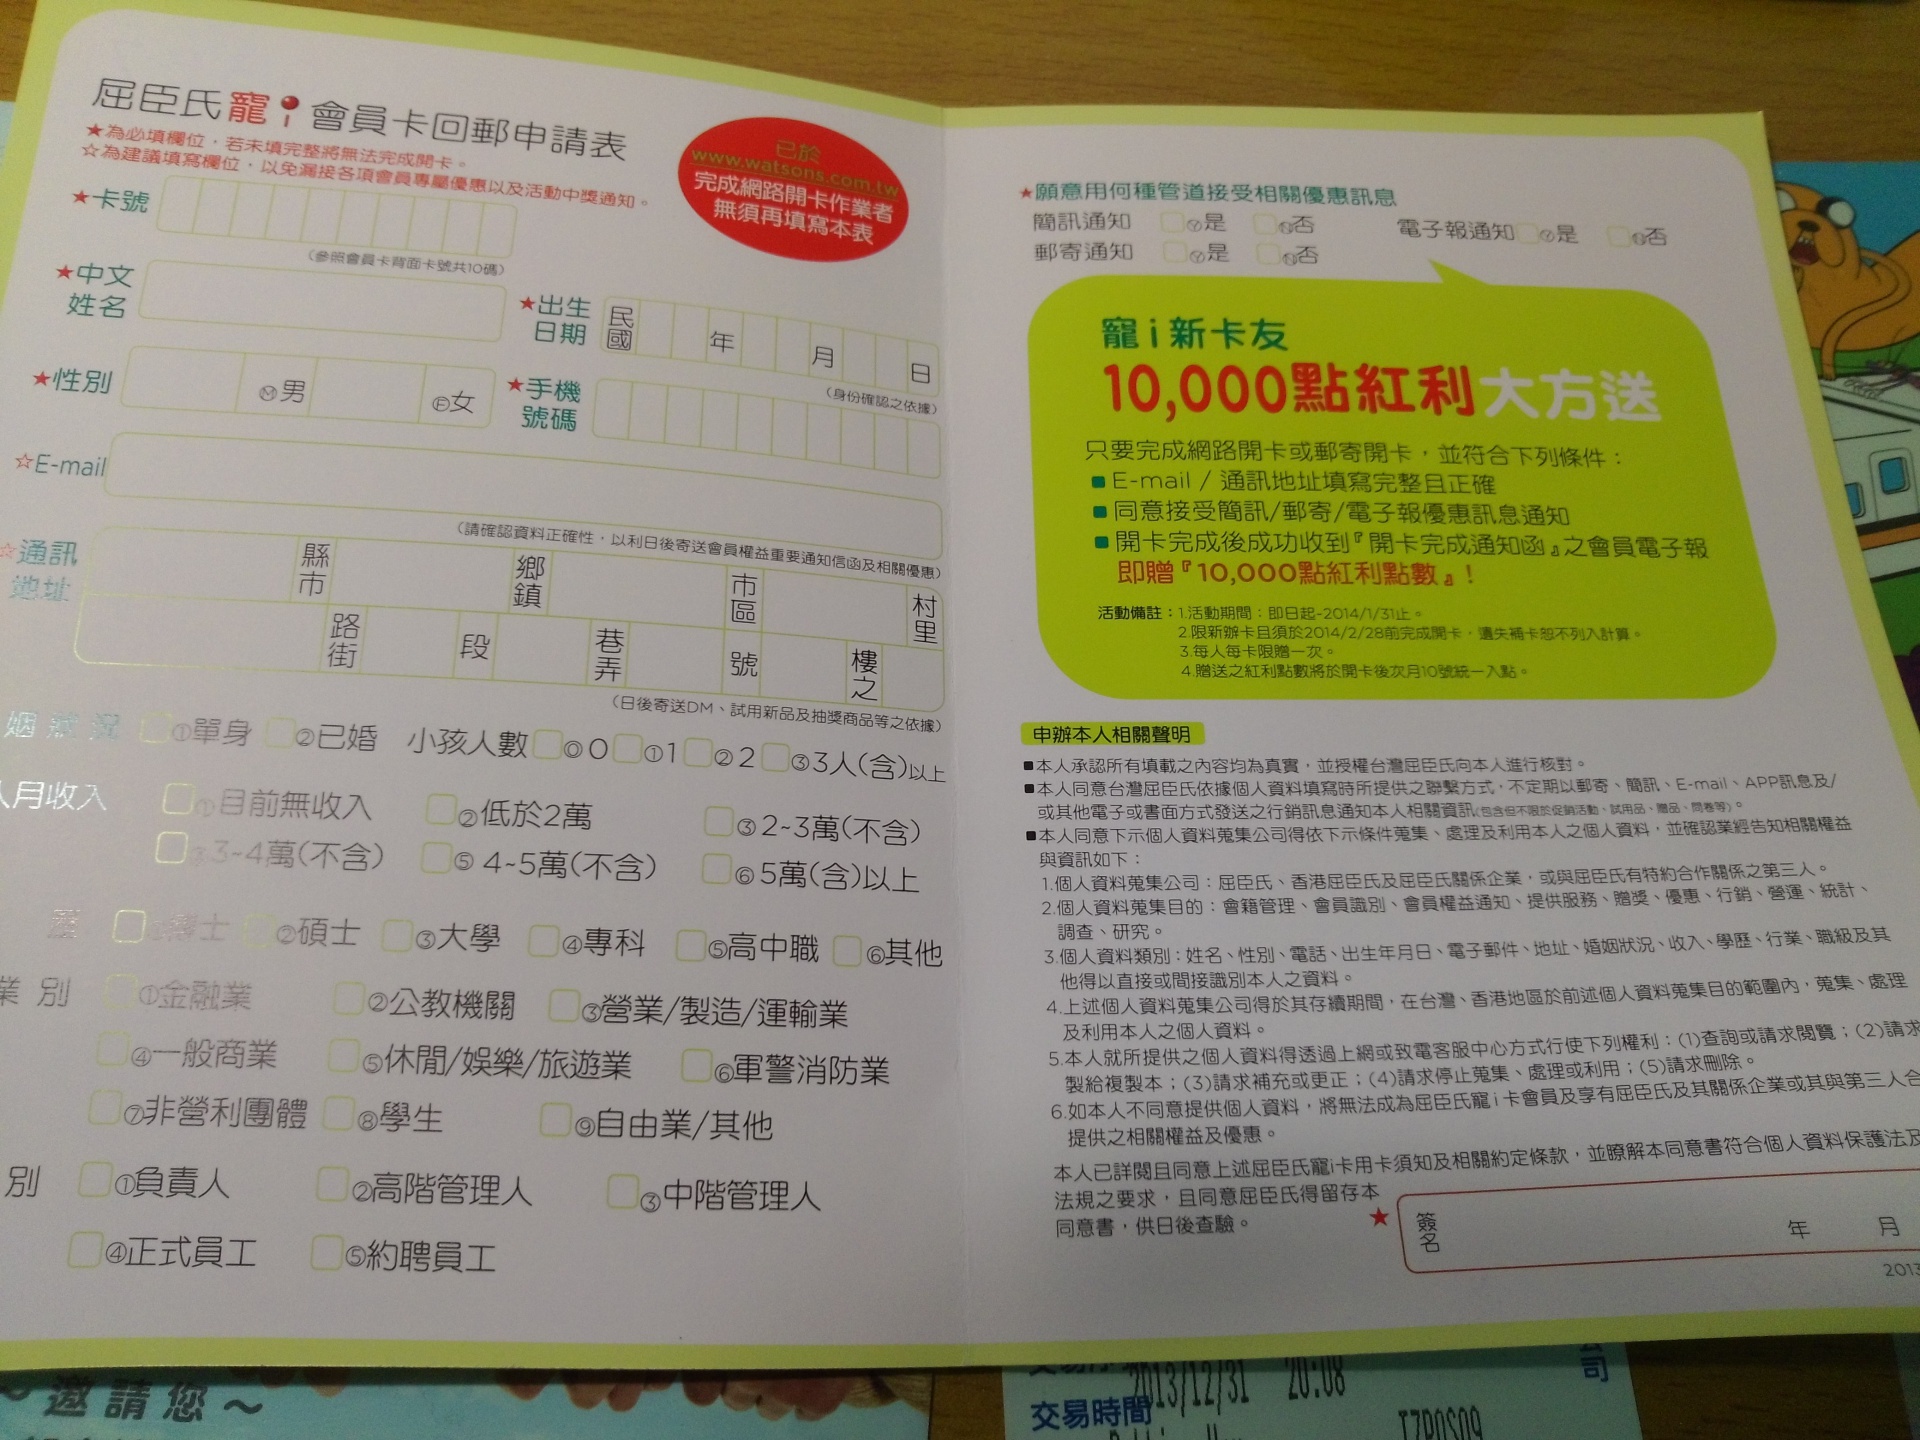 屈臣氏寵i會員卡回郵申請表
★為必填欄位，若未填完整將無法完成開卡。
☆為建議填寫欄位，以免漏接各項會員專屬優惠以及活動中獎通知。
已於
www.watsons.com.tw
完成網路開卡作業者
無須再填寫本表
★卡號
(參照會員卡背面卡號共10碼)
★中文姓名
★出生日期 民國 年 月 日
(身份確認之依據)
★性別 Ⓜ男 Ⓕ女
★手機號碼
☆E-mail
(請確認資料正確性，以利日後寄送會員權益重要通知信函及相關優惠)
☆通訊地址 縣市 鄉鎮 市區 村里
路街 段 巷弄 號 樓之
(日後寄送DM、試用新品及抽獎商品等之依據)
姻狀況 ①單身 ②已婚 小孩人數 ⓪0 ①1 ②2 ③3人(含)以上
人月收入 ①目前無收入 ②低於2萬 ③2~3萬(不含)
3~4萬(不含) ⑤4~5萬(不含) ⑥5萬(含)以上
博士 ②碩士 ③大學 ④專科 ⑤高中職 ⑥其他
業別 ①金融業 ②公教機關 ③營業/製造/運輸業
④一般商業 ⑤休閒/娛樂/旅遊業 ⑥軍警消防業
⑦非營利團體 ⑧學生 ⑨自由業/其他
別 ①負責人 ②高階管理人 ③中階管理人
④正式員工 ⑤約聘員工
★願意用何種管道接受相關優惠訊息
簡訊通知 Ⓨ是 Ⓝ否 電子報通知 Ⓨ是 Ⓝ否
郵寄通知 Ⓨ是 Ⓝ否
寵i新卡友
10,000點紅利大方送
只要完成網路開卡或郵寄開卡，並符合下列條件：
■E-mail / 通訊地址填寫完整且正確
■同意接受簡訊/郵寄/電子報優惠訊息通知
■開卡完成後成功收到『開卡完成通知函』之會員電子報
即贈『10,000點紅利點數』!
活動備註：1.活動期間：即日起-2014/1/31止。
2.限新辦卡且須於2014/2/28前完成開卡，遺失補卡恕不列入計算。
3.每人每卡限贈一次。
4.贈送之紅利點數將於開卡後次月10號統一入點。
申辦本人相關聲明
■本人承認所有填載之內容均為真實，並授權台灣屈臣氏向本人進行核對。
■本人同意台灣屈臣氏依據個人資料填寫時所提供之聯繫方式，不定期以郵寄、簡訊、E-mail、APP訊息及/
或其他電子或書面方式發送之行銷訊息通知本人相關資訊(包含但不限於促銷活動、試用品、贈品、問卷等)。
■本人同意下示個人資料蒐集公司得依下示條件蒐集、處理及利用本人之個人資料，並確認業經告知相關權益
與資訊如下：
1.個人資料蒐集公司：屈臣氏、香港屈臣氏及屈臣氏關係企業，或與屈臣氏有特約合作關係之第三人。
2.個人資料蒐集目的：會籍管理、會員識別、會員權益通知、提供服務、贈獎、優惠、行銷、營運、統計、
調查、研究。
3.個人資料類別：姓名、性別、電話、出生年月日、電子郵件、地址、婚姻狀況、收入、學歷、行業、職級及其
他得以直接或間接識別本人之資料。
4.上述個人資料蒐集公司得於其存續期間，在台灣、香港地區於前述個人資料蒐集目的範圍內，蒐集、處理
及利用本人之個人資料。
5.本人就所提供之個人資料得透過上網或致電客服中心方式行使下列權利：(1)查詢或請求閱覽；(2)請求
製給複製本；(3)請求補充或更正；(4)請求停止蒐集、處理或利用；(5)請求刪除。
6.如本人不同意提供個人資料，將無法成為屈臣氏寵i卡會員及享有屈臣氏及其關係企業或其與第三人合
提供之相關權益及優惠。
本人已詳閱且同意上述屈臣氏寵i卡用卡須知及相關約定條款，並瞭解本同意書符合個人資料保護法及
法規之要求，且同意屈臣氏得留存本
同意書，供日後查驗。
★ 簽名 年 月
2013
~邀請您~
2013/12/31 20:08
交易時間
公司